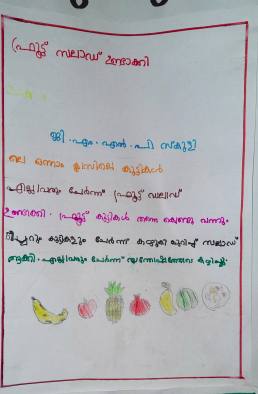 ഫ്രൂട്ട് സലാഡ് ഉണ്ടാക്കി
ജി.എം.എൽ.പി സ്കൂളി
ലെ ഒന്നാം ക്ലാസിലെ കുട്ടികൾ
എല്ലാവരും ചേർന്ന് ഫ്രൂട്ട് സലാഡ്
ഉണ്ടാക്കി. ഫ്രൂട്ട് കുട്ടികൾ തന്നെ കൊണ്ടു വന്നു.
ടീച്ചറും കുട്ടികളും ചേർന്ന് കഴുകി മുറിച്ച് സലാഡ്
ആക്കി. എല്ലാവരും ചേർന്ന് സന്തോഷത്തോടെ കഴിച്ചു.